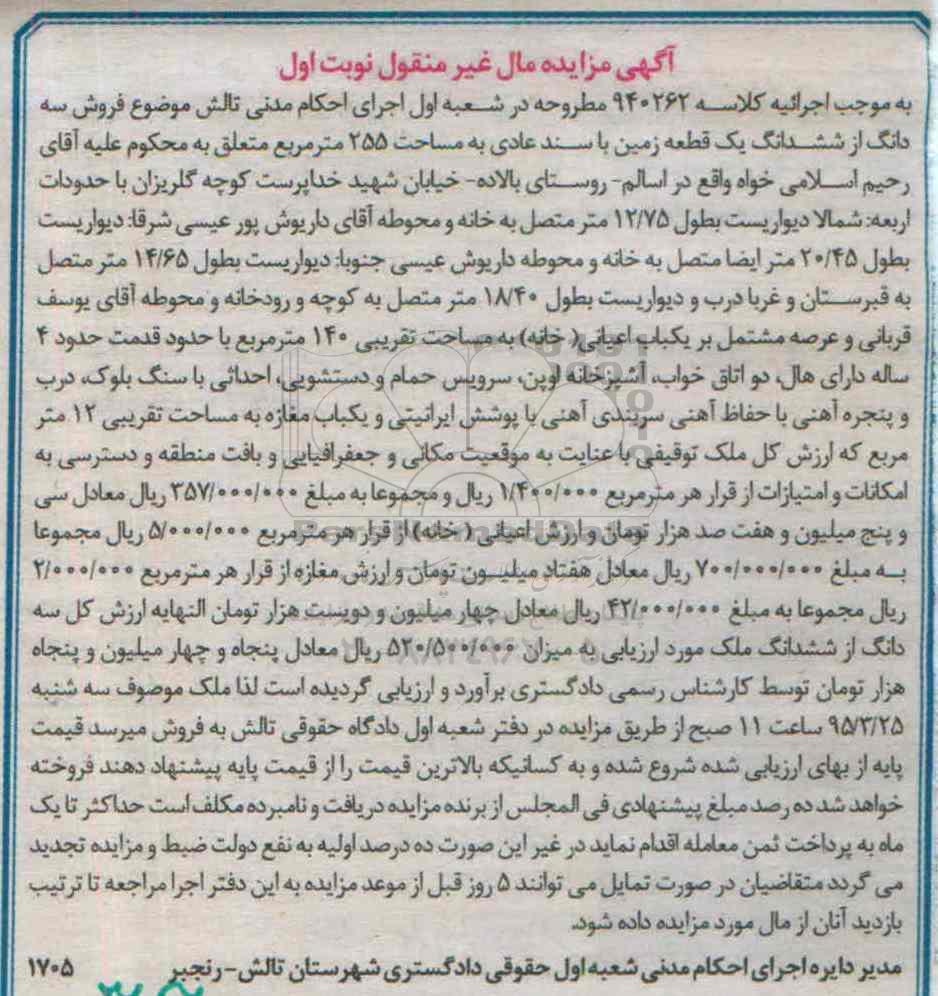 آگهی مزایده مال غیر منقول نوبت اول
به موجب اجرائیه کلاسه ۹۴۰۲۶۲ مطروحه در شعبه اول اجرای احکام مدنی تالش موضوع فروش سه
دانگ از ششدانگ یک قطعه زمین با سند عادی به مساحت ۲۵۵ مترمربع متعلق به محکوم علیه آقای
رحیم اسلامی خواه واقع در اسالم- روستای بالاده- خیابان شهید خداپرست کوچه گلریزان با حدودات
اربعه: شمالا دیواریست بطول ۱۲/۷۵ متر متصل به خانه و محوطه آقای داریوش پور عیسی شرقا: دیواریست
بطول ۲۰/۴۵ متر ایضا متصل به خانه و محوطه داریوش عیسی جنوبا: دیواریست بطول ۱۴/۶۵ متر متصل
به قبرستان و غربا درب و دیواریست بطول ۱۸/۴۰ متر متصل به کوچه و رودخانه و محوطه آقای یوسف
قربانی و عرصه مشتمل بر یکباب اعیانی( خانه) به مساحت تقریبی ۱۴۰ مترمربع با حدود قدمت حدود ۴
ساله دارای هال، دو اتاق خواب، آشپزخانه اوپن، سرویس حمام و دستشویی، احداثی با سنگ بلوک، درب
و پنجره آهنی با حفاظ آهنی سربندی آهنی با پوشش ایرانیتی و یکباب مغازه به مساحت تقریبی ۱۲ متر
مربع که ارزش کل ملک توقیفی با عنایت به موقعیت مکانی و جعفرافیایی و بافت منطقه و دسترسی به
امکانات و امتیازات از قرار هر مترمربع ۱/۴۰۰/۰۰۰ ریال و مجموعا به مبلغ ۳۵۷/۰۰۰/۰۰۰ ریال معادل سی
و پنج میلیون و هفت صد هزار تومان و ارزش اعیانی ( خانه) از قرار هر مترمربع ۵/۰۰۰/۰۰۰ ریال مجموعا
به مبلغ ۷۰۰/۰۰۰/۰۰۰ ریال معادل هفتاد میلیون تومان و ارزش مغازه از قرار هر مترمربع ۲/۰۰۰/۰۰۰
ریال مجموعا به مبلغ ۴۲/۰۰۰/۰۰۰ ریال معادل چهار میلیون و دویست هزار تومان النهایه ارزش کل سه
دانگ از ششدانگ ملک مورد ارزیابی به میزان ۵۴۰/۵۰۰/۰۰۰ ریال معادل پنجاه و چهار میلیون و پنجاه
هزار تومان توسط کارشناس رسمی دادگستری برآورد و ارزیابی گردیده است لذا ملک موصوف سه شنبه
۹۵/۳/۲۵ ساعت ۱۱ صبح از طریق مزایده در دفتر شعبه اول دادگاه حقوقی تالش به فروش میرسد قیمت
پایه از بهای ارزیابی شده شروع شده و به کسانیکه بالاترین قیمت را از قیمت پایه پیشنهاد دهند فروخته
خواهد شد ده رصد مبلغ پیشنهادی فی المجلس از برنده مزایده دریافت و نامبرده مکلف است حداکثر تا یک
ماه به پرداخت ثمن معامله اقدام نماید در غیر این صورت ده درصد اولیه به نفع دولت ضبط و مزایده تجدید
می گردد متقاضیان در صورت تمایل می توانند ۵ روز قبل از موعد مزایده به این دفتر اجرا مراجعه تا ترتیب
بازدید آنان از مال مورد مزایده داده شود.
مدیر دایره اجرای احکام مدنی شعبه اول حقوقی دادگستری شهرستان تالش- رنجبر ۱۷۰۵